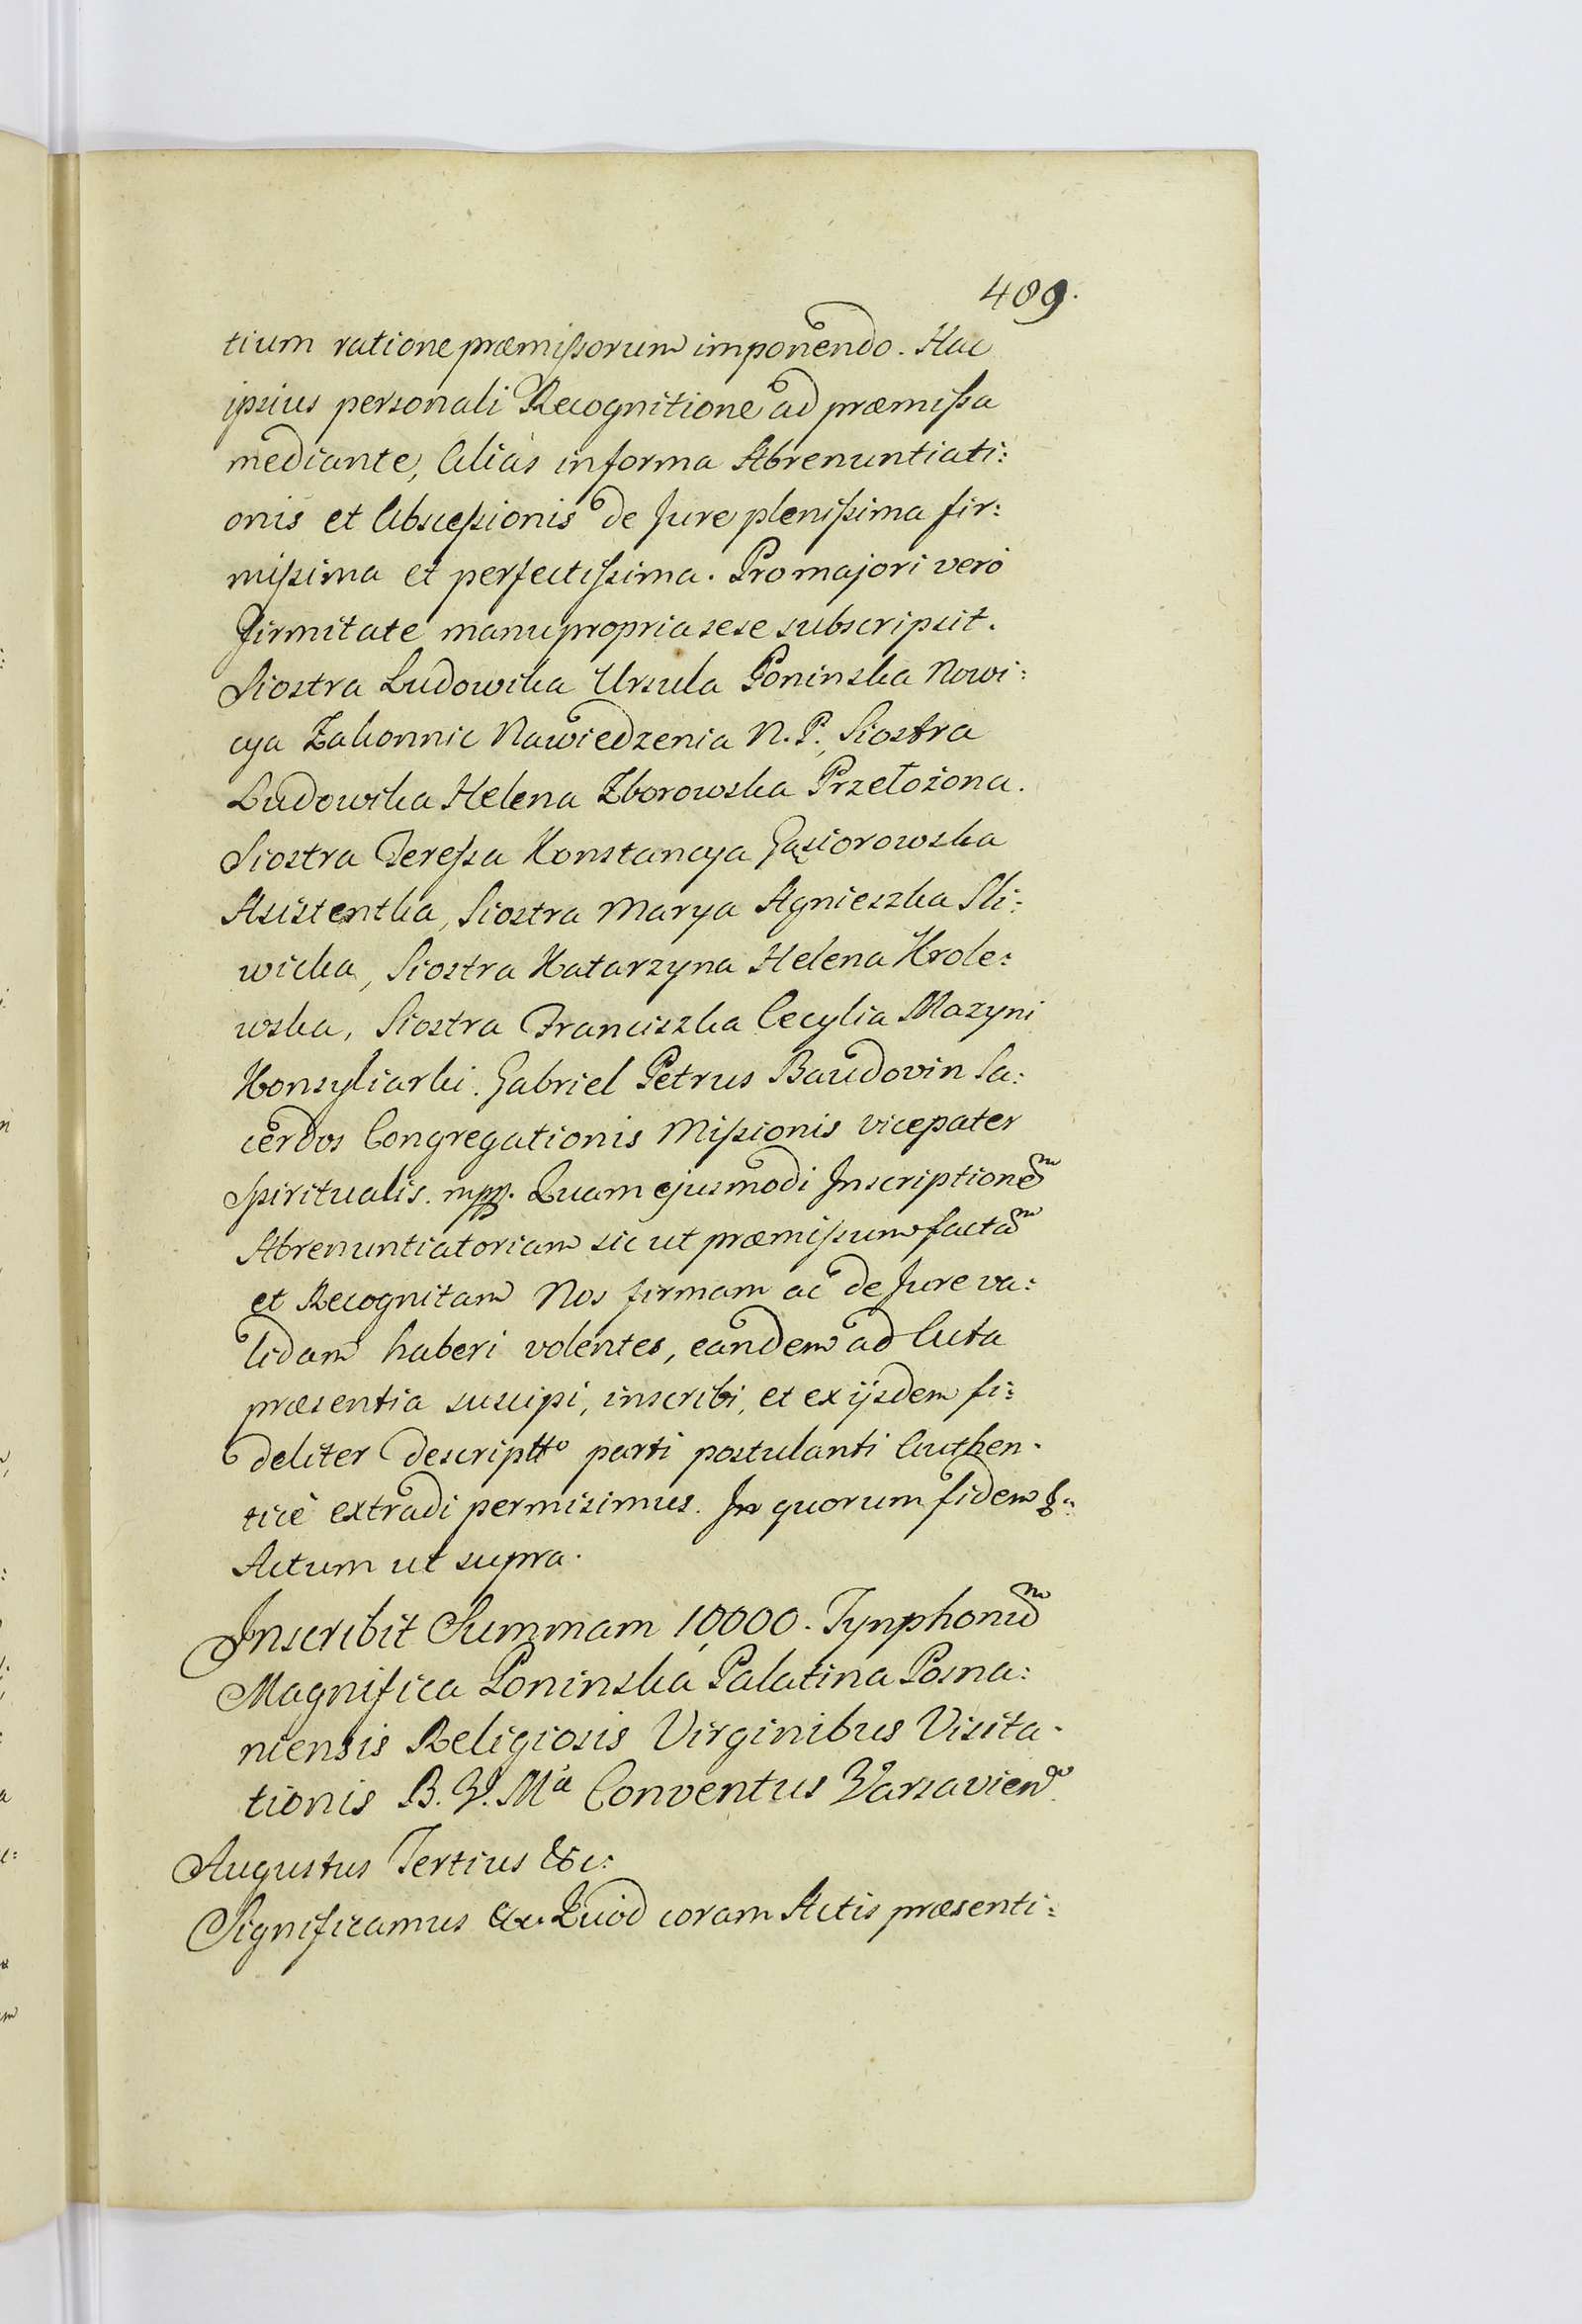 409.
tium ratione præmissorum imponendo. Hac
ipsius personali Recognitione ad præmissa
mediante, Aliàs in forma Abrenuntiati:
onis et Abscessionis de Jure plenissima fir:
missima et perfectissima. Pro majori verò
firmitate manu propria sese subscripsit.
Siostra Ludowika Ursula Poninska Nowi:
cya Zakonnic Nawiedzenia N. P., Siostra
Ludowika Helena Zborowska Przełożona.
Siostra Teressa Konstancya Gąsiorowska
Asistentka, Siostra Marya Agnieszka Sli:
wicka, Siostra Katarzyna Helena Krole:
wska, Siostra Franciszka Cecylia Mazyni
Konsyliarki. Gabriel Petrus Baudovin Sa:
cerdos Congregationis Missionis vicepater
Spiritualis. mpp. Quam ejusmodi Inscriptionem
Abrenuntiatoriam sic ut præmissum factam
et Recognitam Nos firmam ac de Jure va:
lidam haberi volentes, eandem ad Acta
præsentia suscipi, inscribi, et ex ijsdem fi:
deliter descriptto parti postulanti Authen-
ticè extradi permisimus. In quorum fidem &:
Actum ut supra.
Inscribit Summam 10,000. Tynphonum
Magnifica Poninska Palatina Posna:
niensis Religiosis Virginibus Visita-
tionis B. V. Mа Conventus Varsavien
Augustus Tertius &c:
Significamus &c. Quod coram Actis præsenti: